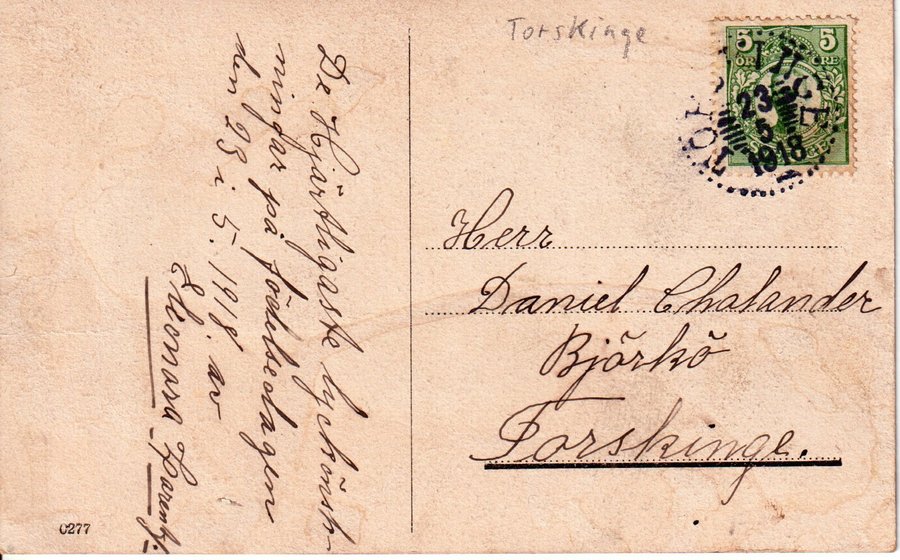 Torskinge
5 5
ÖRE
23
5
1918
De Hjärtligaste lyckönsk-
ningar på födelsedagen
den 23 i 5. 1918. av
Eleonora
Herr
Daniel Chalander
Björkö
Forskinge.
0277